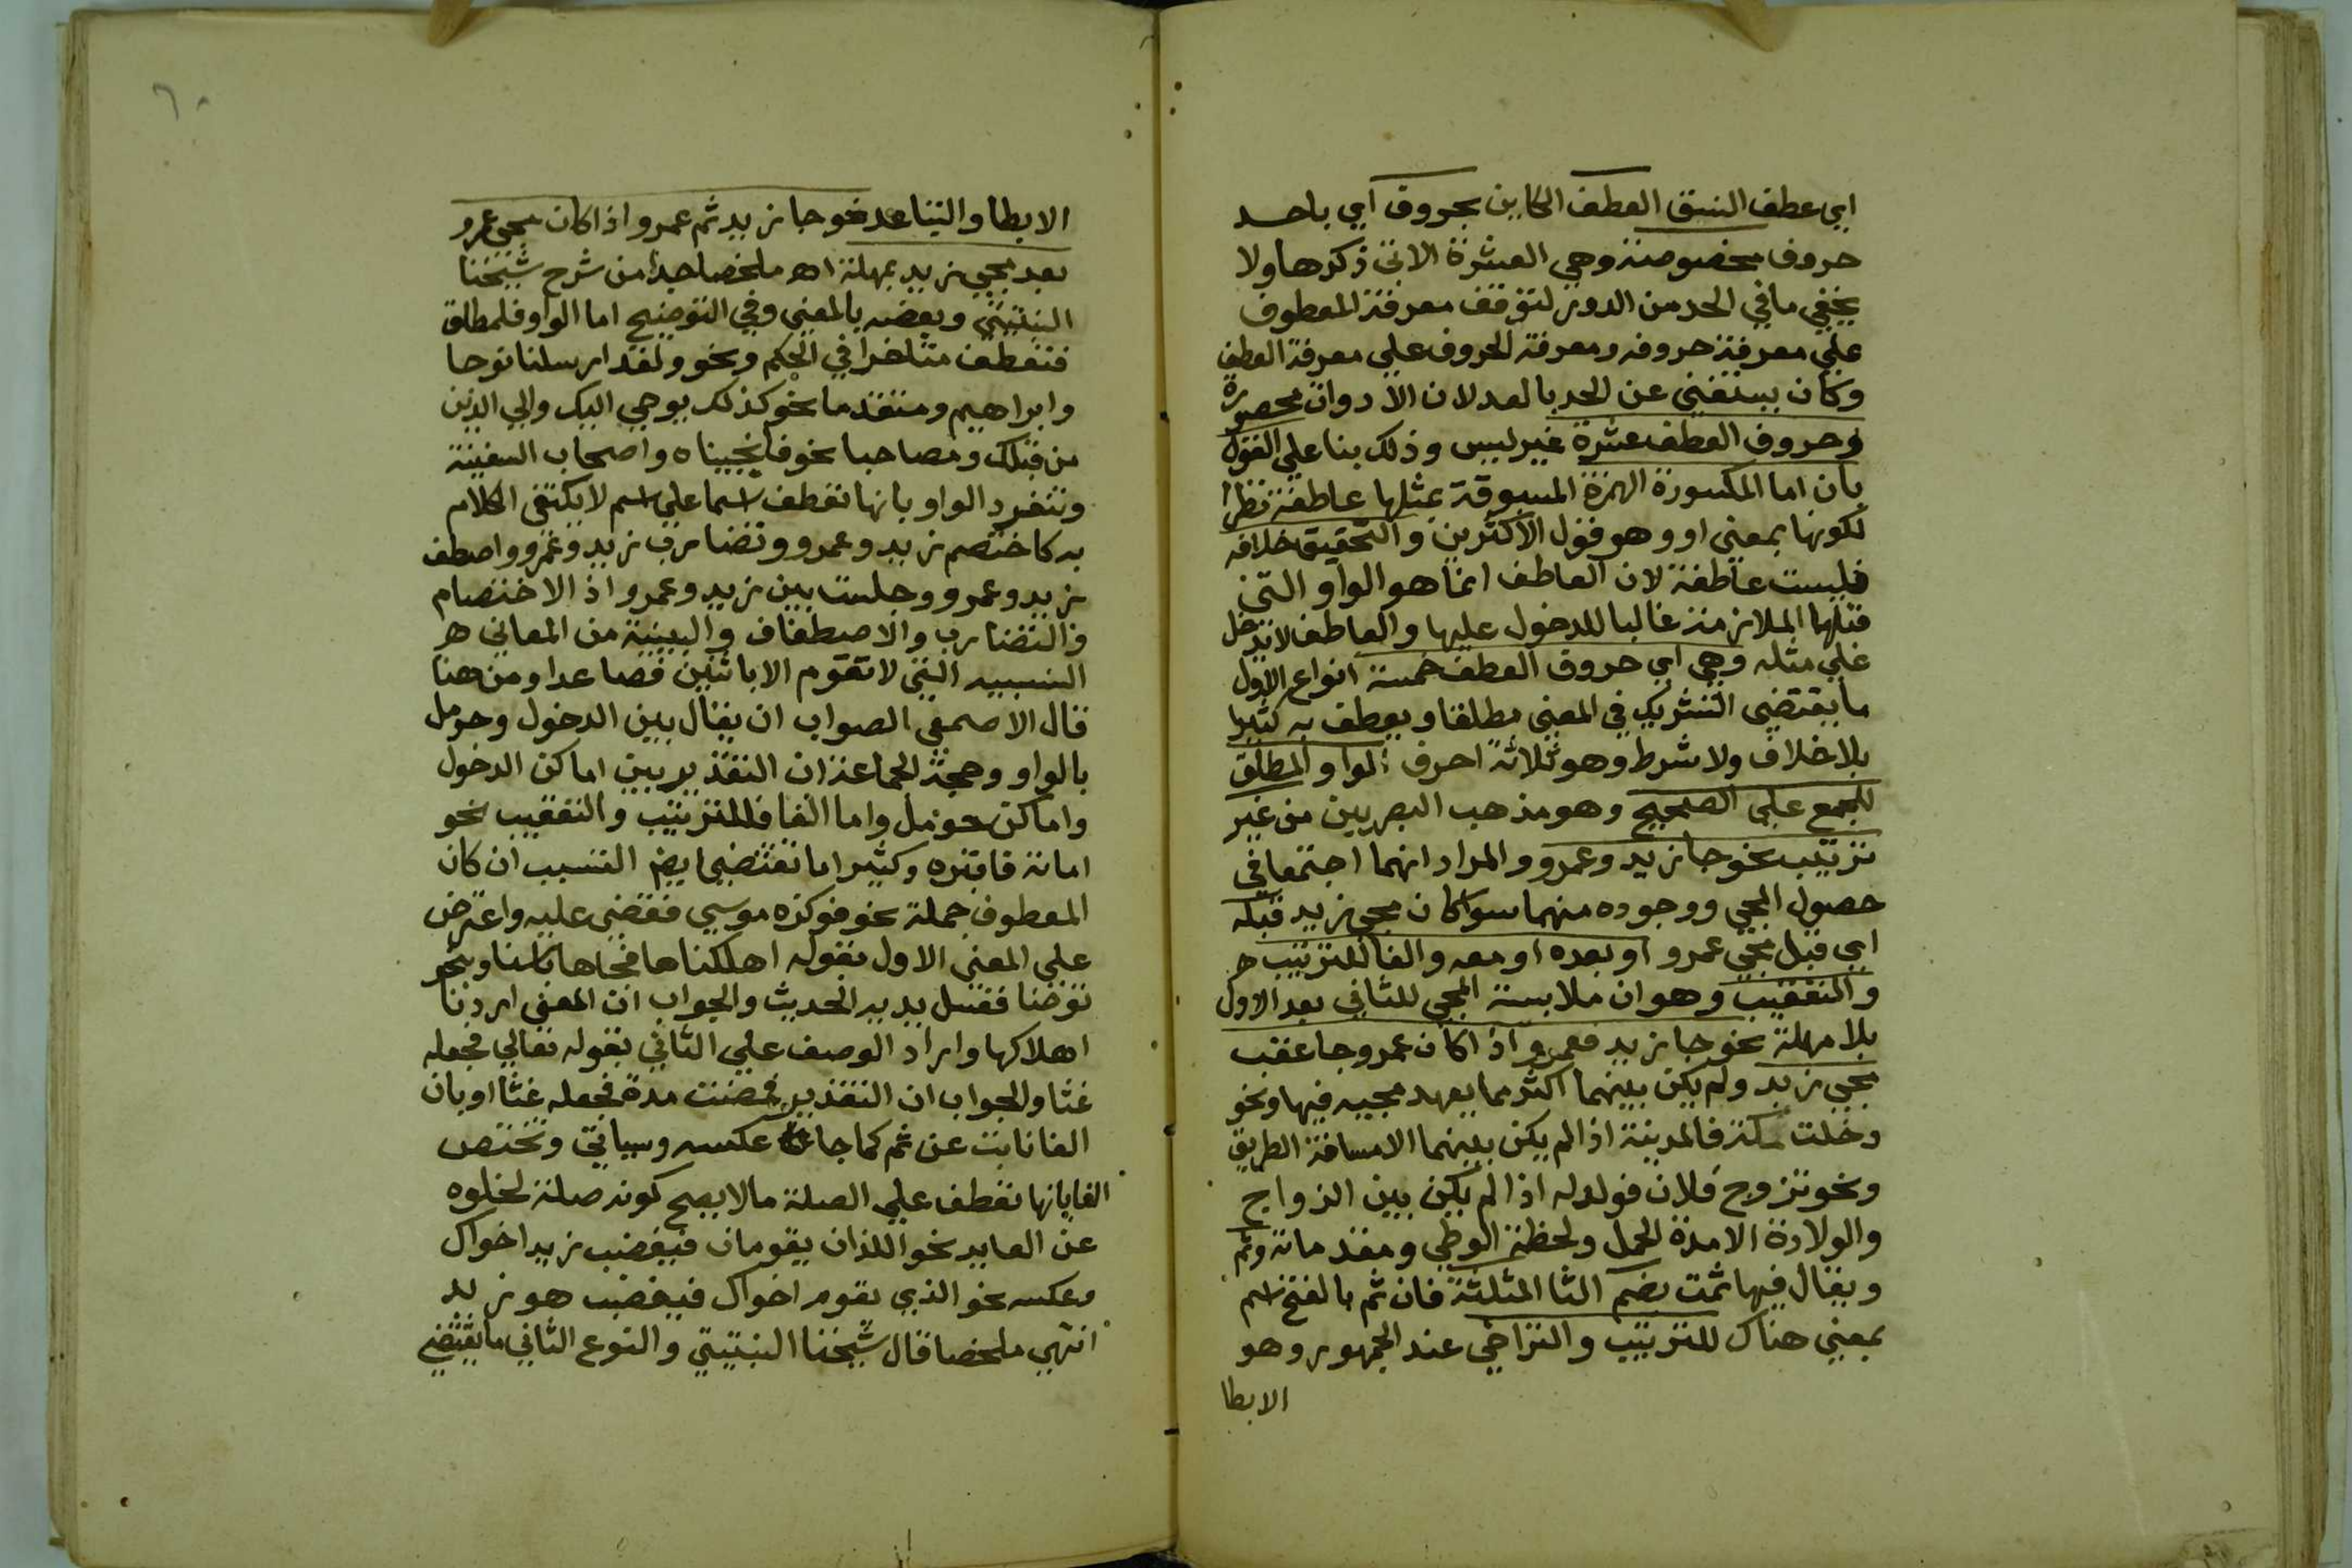 اي عطف النسق العطف الكاين بحروف اي باحد
حروف مخصوصة وهي العشرة الاتي ذكرها ولا
يخفي ما في الحد من الدور لتوقف معرفة المعطوف
علي معرفة حروفه ومعرفة الحروف علي معرفة العطف
وكان يستغني عن الحد بالعد لان الادوات محصورة
وحروف العطف عشرة غير ليس وذلك بنا علي القول
بان اما المكسورة الهمزة المسبوقة بمثلها عاطفة نظرا
لكونها بمعني او وهو قول الاكثرين والتحقيق خلافه
فليست عاطفة لان العاطف انما هو الواو التي
قبلها الملازمة غالبا للدخول عليها والعاطف لا يدخل
علي مثله وهي اي حروف العطف خمسة انواع الاول
ما يقتضي التشريك في المعني مطلقا ويعطف به كثيرا
بلا خلاف ولا شرط وهو ثلاثة احرف الواو المطلق
للجمع علي الصحيح وهو مذهب البصريين من غير
ترتيب نحو جا زيد وعمرو والمراد انهما اجتمعا في
حصول المجي ووجوده منهما سوا كان مجي زيد قبله
اي قبل مجي عمرو او بعده او معه والفا للترتيب ه
والتعقيب وهو ان ملابسة المجي للثاني بعد الاول
بلا مهلة نحو جا زيد فعمرو اذا كان عمرو جا عقب
مجي زيد ولم يكن بينهما اكثر مما يعهد مجييه فيها ونحو
دخلت مكة فالمدينة اذا لم يكن بينهما الا مسافة الطريق
ونحو تزوج فلان فولد له اذا لم يكن بين الزواج
والولادة الا مدة الحمل ولحظة الوطي ومقدماته وثم
ويقال فيها ثمت بضم الثا المثلثة فان ثم بالفتح اسم
بمعني هناك للترتيب والتراخي عند الجمهور وهو
الابطا
٦٠
الابطا والتباعد نحو جا زيد ثم عمرو اذا كان مجي عمرو
بعد مجي زيد بمهلة اه ملخصا جدا من شرح شيخنا
النبتيتي وبعضه بالمعني وفي التوضيح اما الواو فلمطلق
فتعطف متاخرا في الحكم ونحو ولقد ارسلنا نوحا
وابراهيم ومتقدما نحو كذلك يوحي اليك والي الذين
من قبلك ومصاحبا نحو فانجيناه واصحاب السفينة
وتنفرد الواو بانها تعطف اسما علي اسم لا يكتفي الكلام
به كاختصم زيد وعمرو وتضارب زيد وعمرو واصطف
زيد وعمرو وجلست بين زيد وعمرو اذ الاختصام
والتضارب والاصطفاف والبينية من المعاني ه
النسبيه التي لا تقوم الا باثنين فصاعدا ومن هنا
قال الاصمعي الصواب ان يقال بين الدخول وحومل
بالواو وحجة الجماعة ان التقدير بين اماكن الدخول
واماكن حومل واما الفا فللترتيب والتعقيب نحو
اماته فاقبره وكثيرا ما تقتضي ايض التسبب ان كان
المعطوف جملة نحو فوكزه موسي فقضي عليه واعترض
علي المعني الاول بقوله اهلكناها فجاها باسنا ونحو
توضا فغسل يديه الحديث والجواب ان المعني اردنا
اهلاكها واراد الوصف علي الثاني بقوله تعالي فجعله
غثا والجواب ان التقدير فمضت مدة فجعله غثا او بان
الفا نابت عن ثم كما جا عكسه وسياتي وتختص
الفا بانها تعطف علي الصلة ما لا يصح كونه صلة لخلوه
عن العايد نحو اللذان يقومان فيغضب زيد اخواك
وعكسه نحو الذي يقوم اخواك فيغضب هو زيد
انتهي ملخصا قال شيخنا النبتيتي والنوع الثاني ما يقتضي